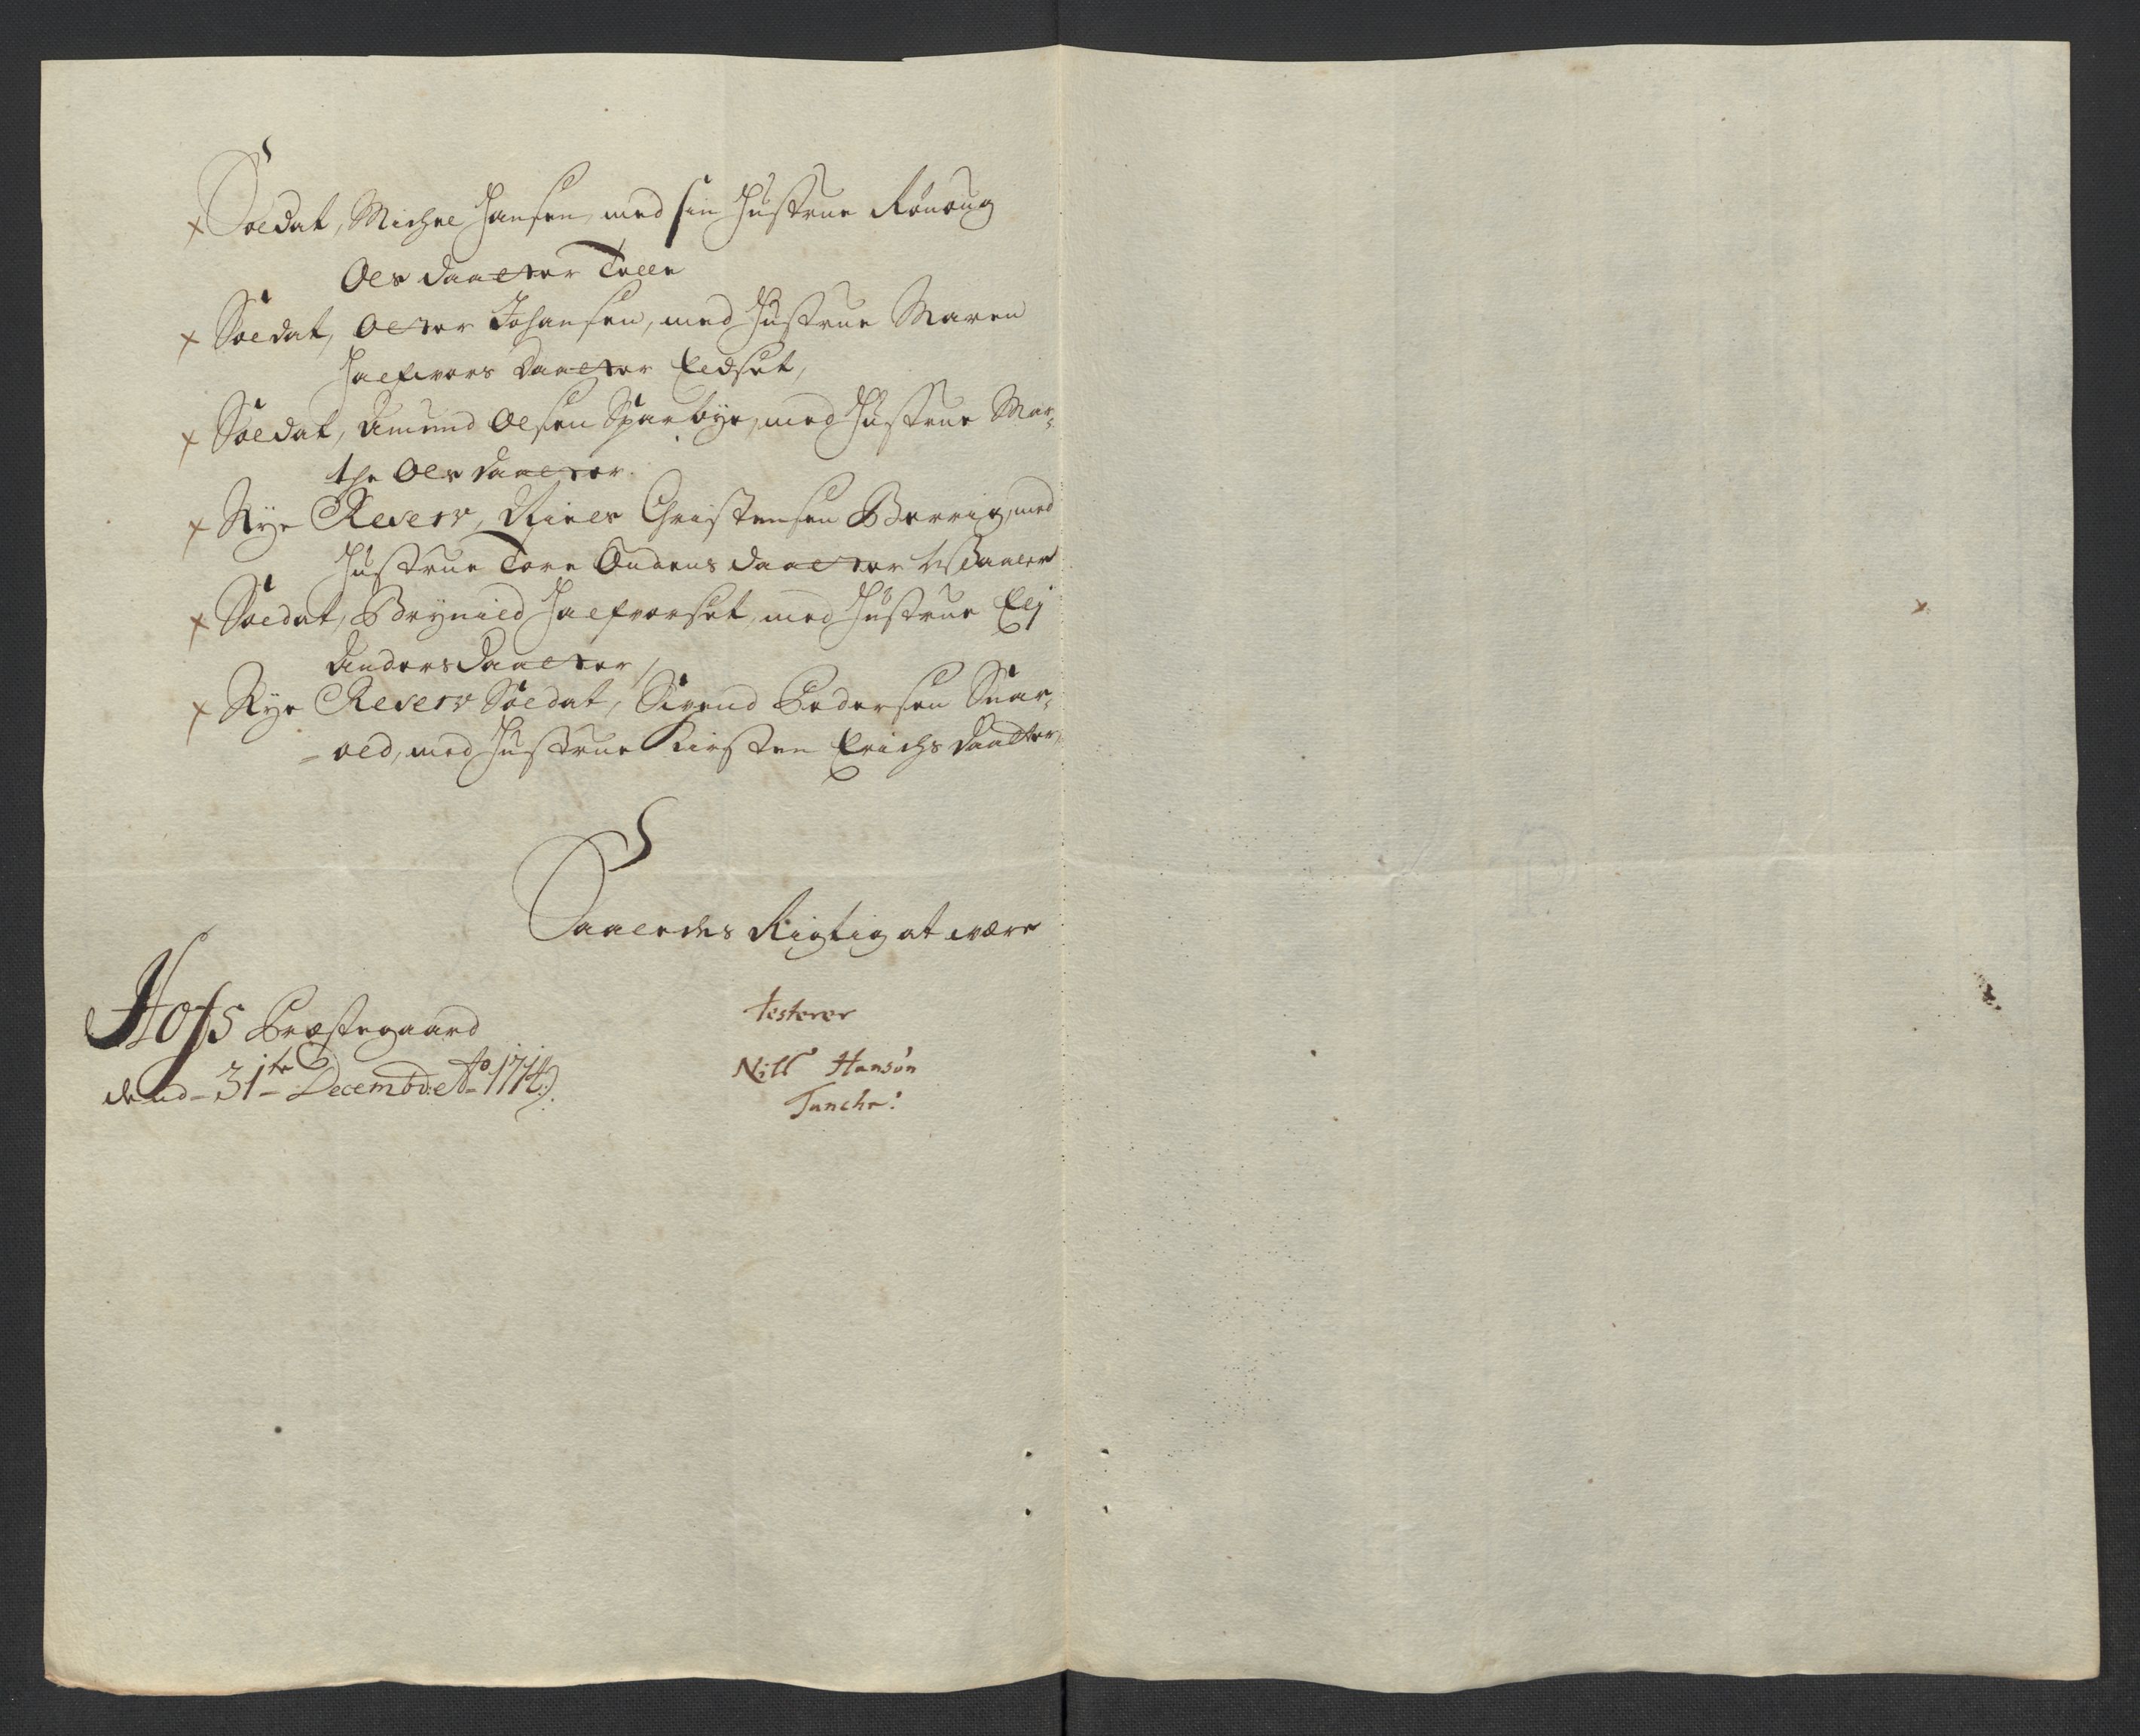 x Soldat, Michel Hansen, med sin Hustrue Rønoug
Ols daatter Tolle
x Soldat, Oluer Johansen, med Hustrue Maren
Halfvors daatter Eidset,
x Soldat, Amund Olsen Sparbye, med Hustrue Mar-
the Ols daatter.
x Nye Reserv, Niels Christensen Berrig, med
Hustrue Tore Oudens daatter
x Soldat, Brynild Halfvorset, med Hustrue Elj
Anders daatter,
x Nye Reserv Soldat, Sivend Pedersen Snar-
= old, med Hustrue Kirsten Erichs daatter,
Saaledes Rigtig at være
Hofs Præstegaard
dend = 31te Decembr: Ao 1714
testerer
Nill Hansøn
Tanche: